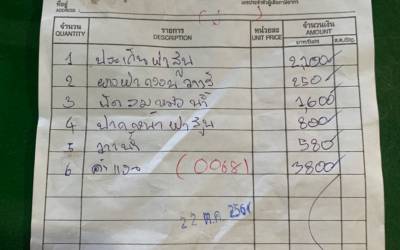 ที่อยู่
ADDRESS
เลขประจำตัวผู้เสียภาษีอากร
จำนวน รายการ หน่วยละ จำนวนเงิน
QUANTITY DESCRIPTION UNIT PRICE AMOUNT
1 ประเก็นฝาสูบ 2,200
2 250
3 หม้อน้ำ 1,600
4 ปาดหน้าฝาสูบ 800
5 วาวน้ำ 580
6 ค่าแรง (0068) 3800
22 ต.ค. 2561